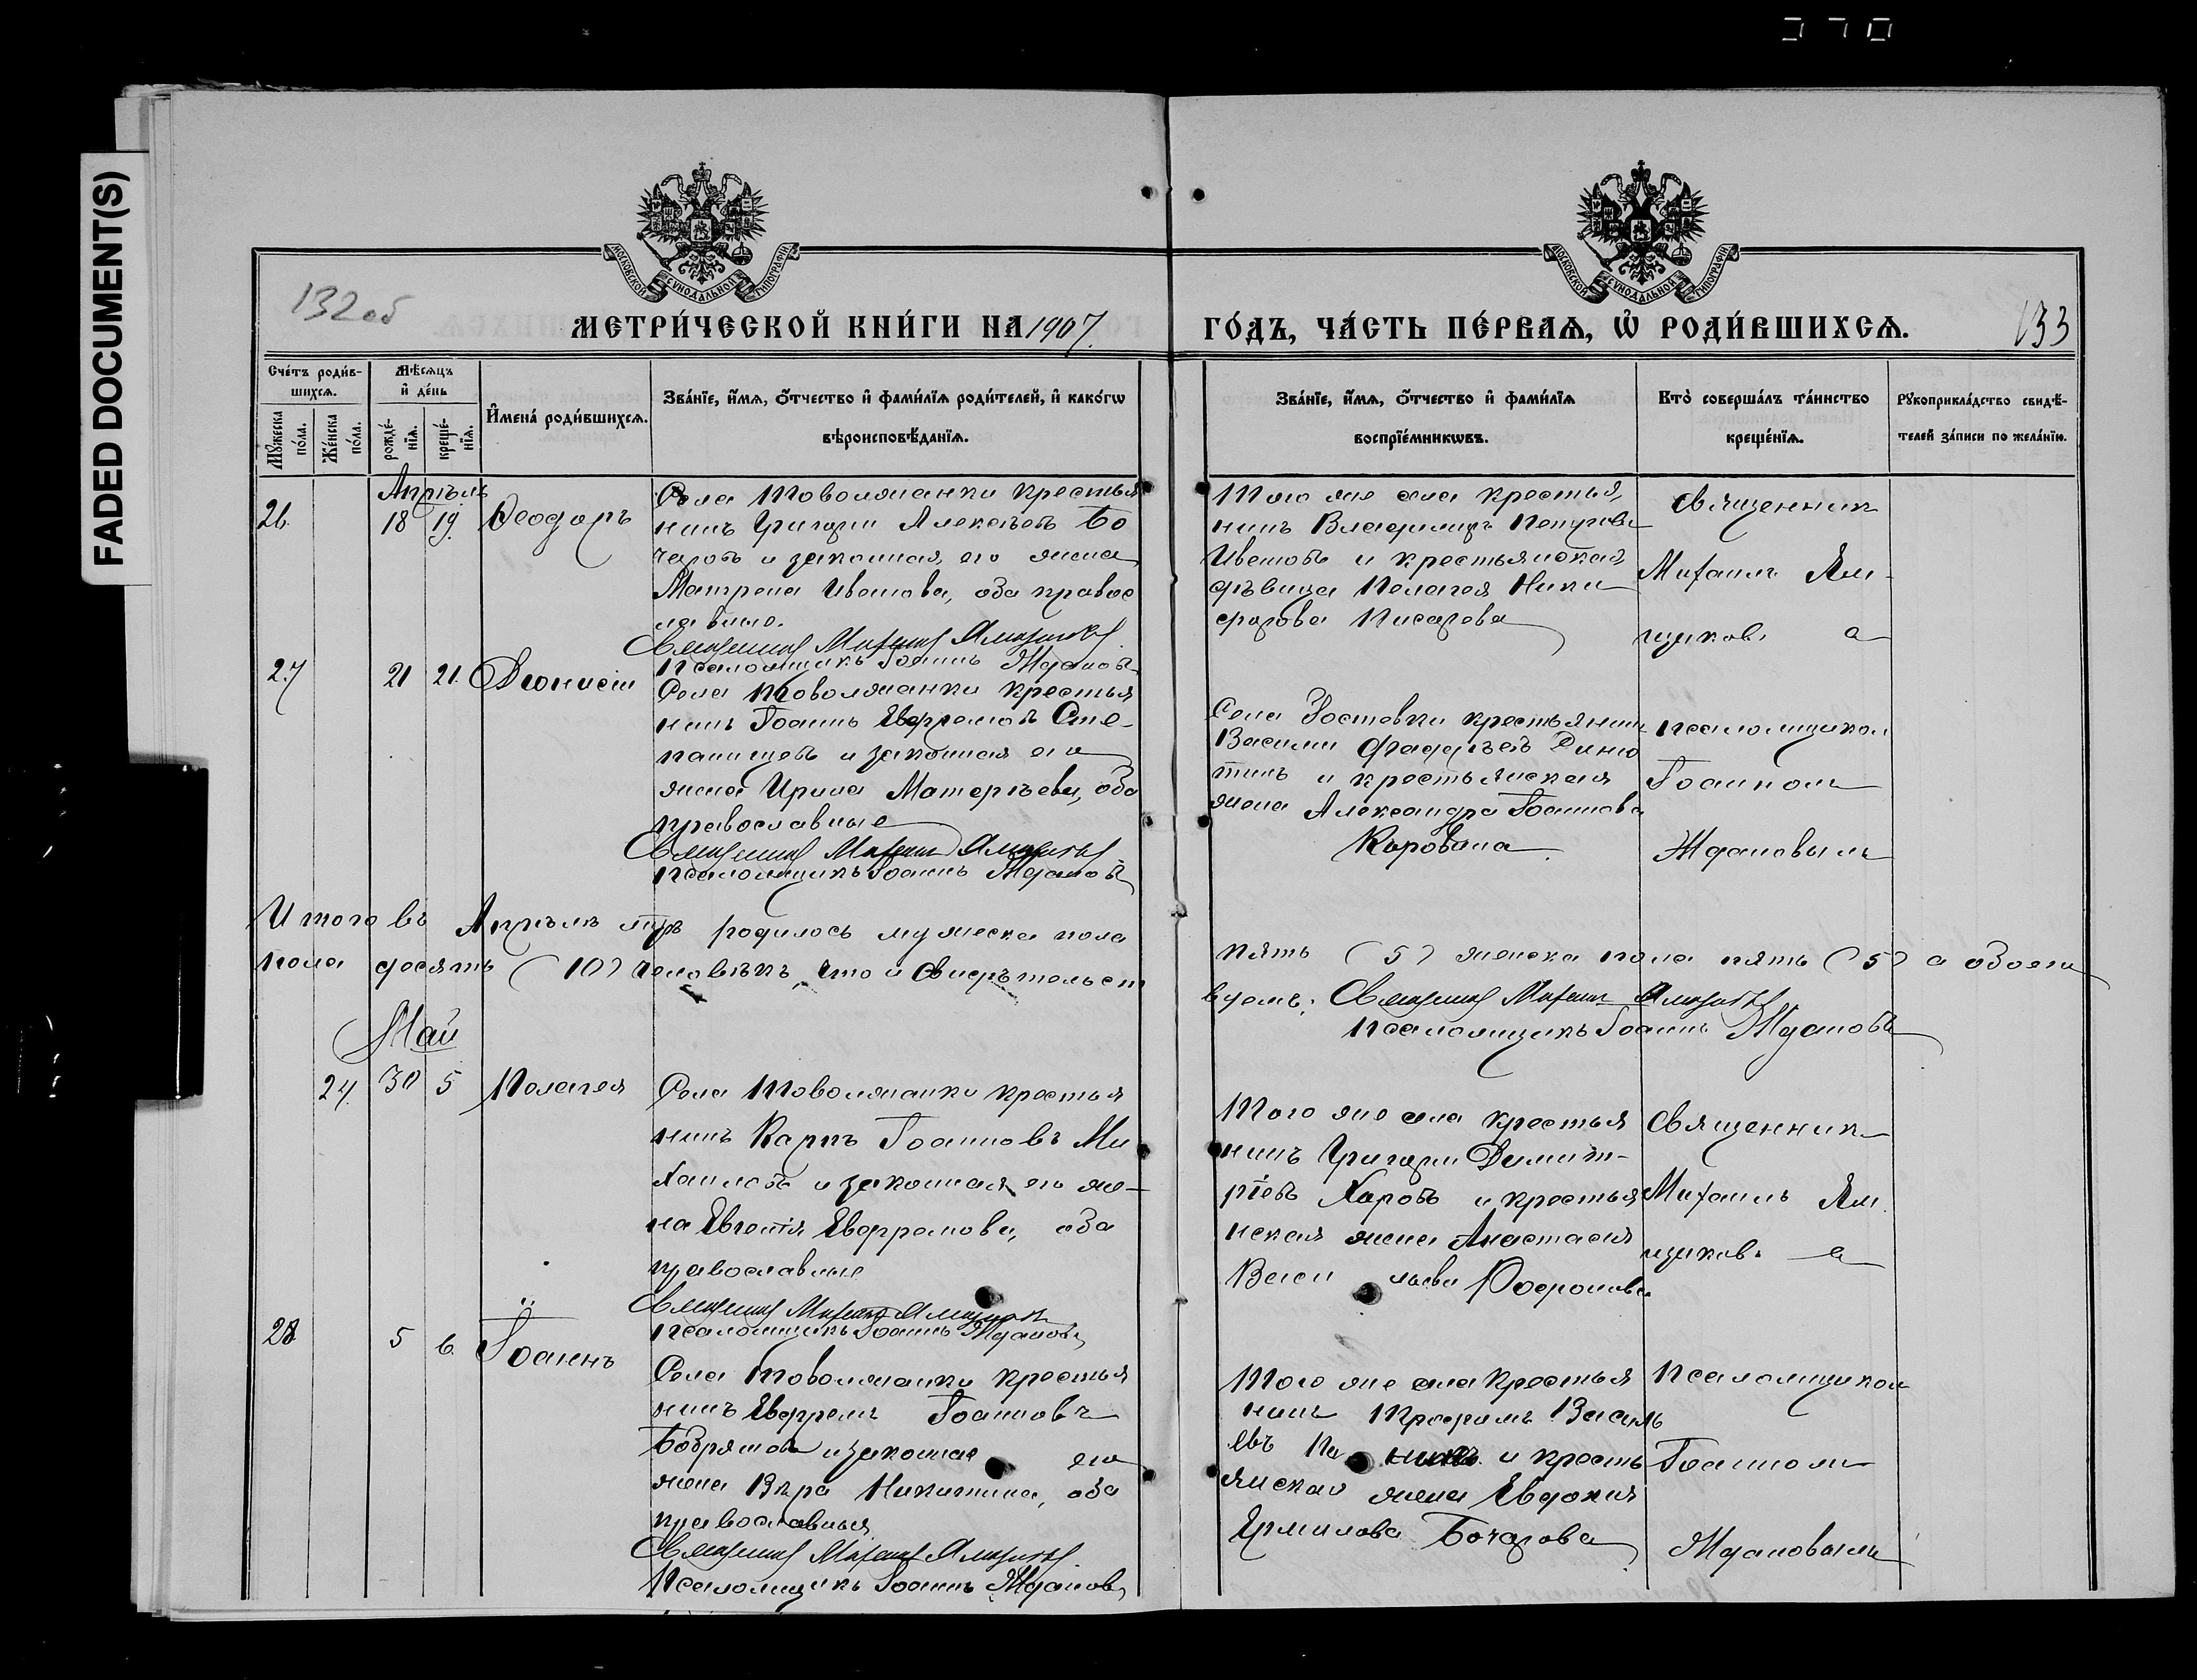 FADED DOCUMENT(S)
132об
МЕТРИ́ЧЕСКОЙ КНИ́ГИ НА 1907.
ГО́ДЪ, ЧА́СТЬ ПЕ́РВАѦ, Ѡ҆ РОДИ́ВШИХСѦ.
133
Сче́тъ роди́в-
шихсѧ.
Мѣ́сѧцъ
и҆ де́нь
Мꙋ́жеска
по́ла.
Же́нска
по́ла.
рожде́-
нїѧ.
креще́-
нїѧ.
И҆мена̀ роди́вшихсѧ.
Зва́нїе, и҆́мѧ, ѻ҆́тчество и҆ фами́лїѧ роди́телей, и҆ како́гѡ
вѣроисповѣ́данїѧ.
Зва́нїе, и҆́мѧ, ѻ҆́тчество и҆ фами́лїѧ
воспрїе́мникѡвъ.
Кто̀ соверша́лъ та́инство
креще́нїѧ.
Рꙋкоприкла́дство свидѣ́-
телей за́писи по жела́нїю.
Апрѣль
26. 18 19. Ѳеодоръ
Села Товолжанки крестья
нинъ Григорій Алексѣевъ Бо
чаровъ и законная его жена
Матрена Иванова, оба правос
лавные.
Священникъ Михаилъ Ямщиковъ
Псаломщикъ Іоаннъ Ждановъ
Того же села крестья
нинъ Владимиръ Петровъ
и крестьянская
дѣвица Пелагея Ники
форова Писарева
Священник
Михаилъ Ям-
щиковъ
27 21 21. Діонисій
Села Товолжанки крестья
нинъ Іоаннъ Евфремовъ Сте-
панищевъ и законная его
жена Ирина Матѳеѣева, оба
православные
Священникъ Михаилъ Ямщиковъ
Псаломщикъ Іоаннъ Ждановъ
Села крестьянинъ
Василій Фаддѣевъ
и крестьянская
жена Александра Іоаннова
Корована
Псаломщиком
Іоанномъ
Ждановымъ
Итого въ Апрѣлѣ м-цѣ родилось мужеска пола
пять (5) женска пола пять (5) а обоего
пола десять (10) человѣкъ, что и свидѣтельст
вуемъ: Священникъ Михаилъ Ямщиковъ
Псаломщикъ Іоаннъ Ждановъ
Май
24. 30 5 Пелагея
Села Товолжанки крестья
нинъ Карпъ Іоанновъ Ми
хайловъ и законная его же-
на Евгенія Евфремова, оба
православные
Священникъ Михаилъ Ямщиковъ
Псаломщикъ Іоаннъ Ждановъ
Того же села крестья
нинъ Григорій Димит-
ріевъ Харовъ и крестья
нская жена Анастасія
Васи льева
Священник
Михаилъ Ям
щиковъ
28 5 6. Іоаннъ
Села Товолжанки крестья
нинъ Евфремъ Іоанновъ
и законная его
жена Вѣра Никитина, оба
православныя
Священникъ Михаилъ Ямщиковъ
Псаломщикъ Іоаннъ Ждановъ
Того же села крестья
нинъ Трофимъ Василь
евъ и кресть
янская жена Евдокія
Ермилова Бочарова
Псаломщиком
Іоанномъ
Ждановымъ